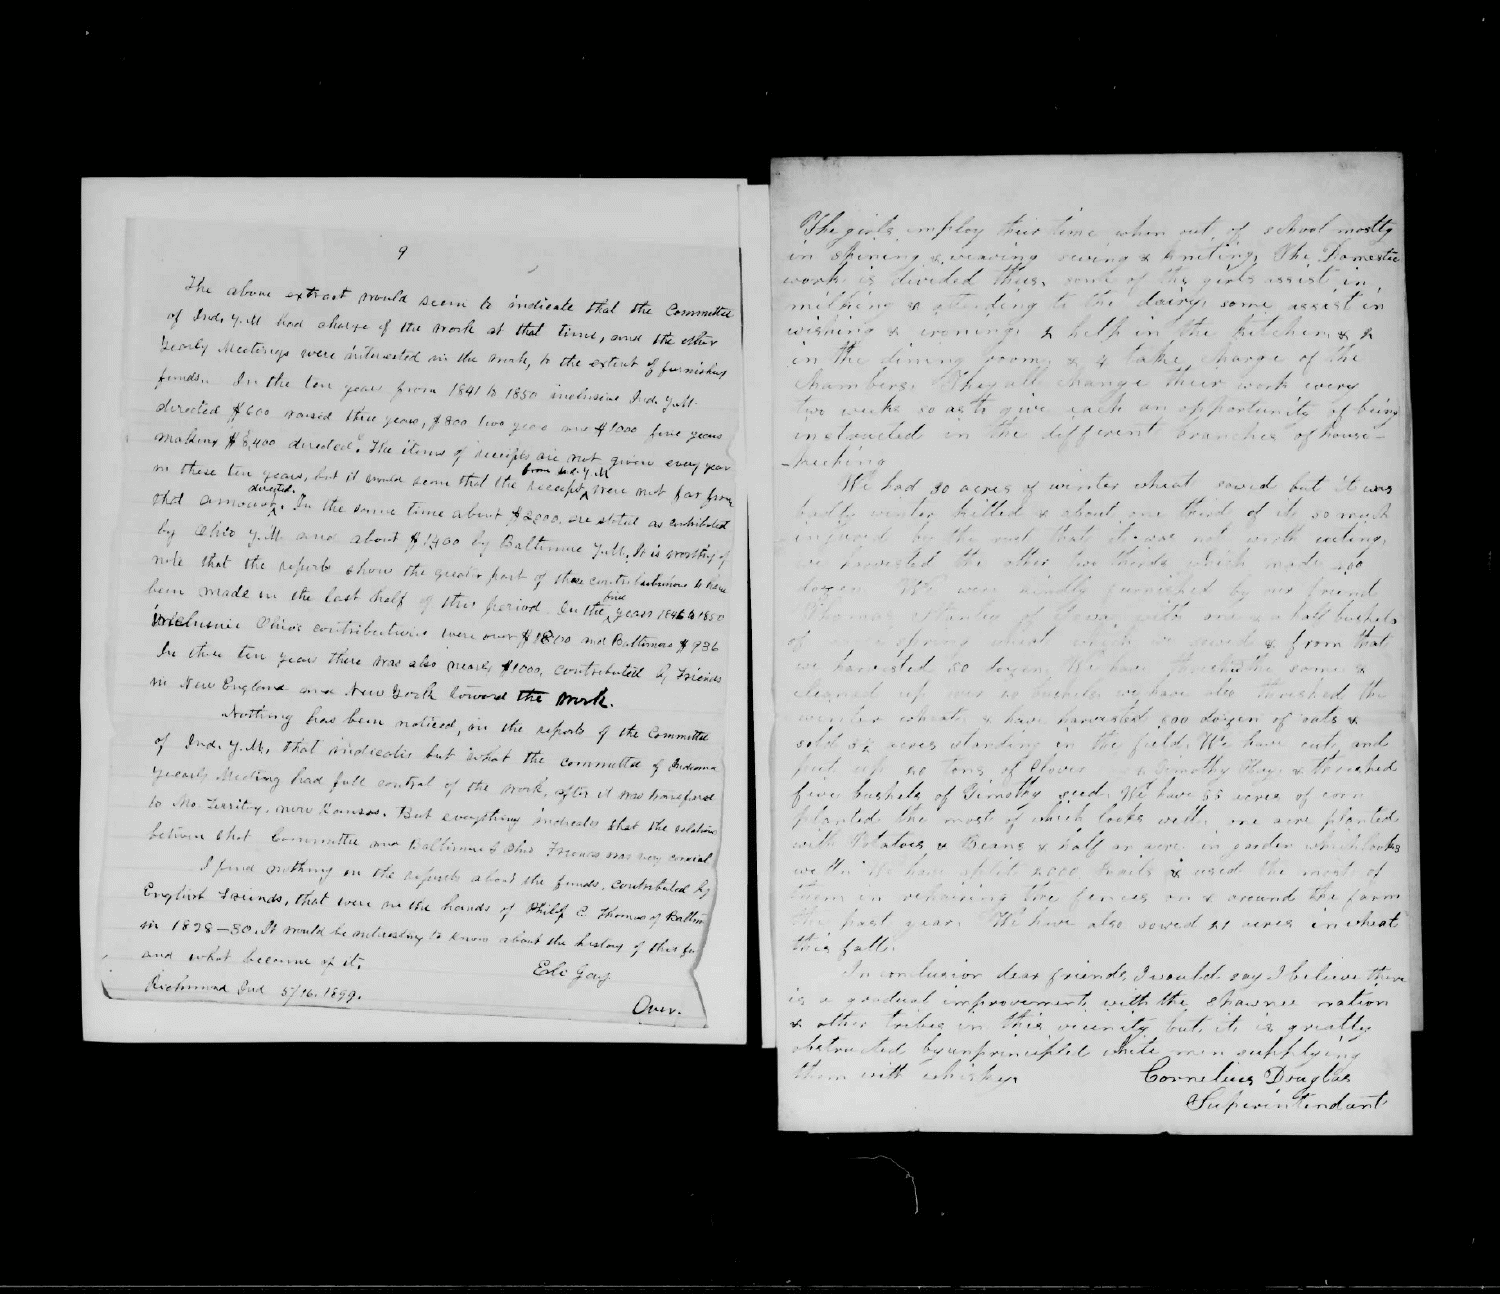 9
The above extract would seem to indicate that the Committee
of Ind. Y.M had charge of the work at that time, and the other
Yearly Meetings were interested in the work, to the extent of furnishing
funds. In the ten years from 1841 to 1850 inclusive Ind. Y.M.
directed $600 raised three years, $800 two years and $1000 five years
making $8,400 directed. The items of receipts are not given every year
in these ten years, but it would seem that the receipts from Ind. Y.M were not far from
that amount directed. In the same time about $2,000. are stated as contributed
by Ohio Y.M. and about $1,400 by Baltimore Y.M. It is worthy of
note that the reports show the greater part of these contributions to have
been made in the last half of this period. In the five years 1846 to 1850
inclusive Ohio's contributions were over $1800 and Baltimore $936
In these ten years there was also nearly $1000, contributed by Friends
in New England and New York toward the work.
Nothing has been noticed, in the reports of the Committee
of Ind. Y.M, that indicates but what the committee of Indiana
Yearly Meeting had full control of the work, after it was transferred
to Mo. Territry, now Kansas. But everything indicates that the relations
between that Committee and Baltimore & Ohio Friends was very cordial
I find nothing in the reports about the funds, contributed by
English Friends, that were in the hands of Philip E. Thomas of Baltim
in 1828-30. It would be interesting to know about the history of this fu
and what became of it.
Eli Jay
Richmond Ind 5/16. 1899.
Over.
The girls employ their time when out of school mostly
in spining & weaving sewing & kniting, The Domestic
work is divided thus. some of the girls assist in
milking & attending to the dairy, some assist in
wishing & ironing, & help in the kitchen, & 2
in the dining room, & 4 take charge of the
chambers. They all change their work every
two weeks so as to give each an opportunity of being
instructed in the different branches of house-
-keeping
We had 30 acres of winter wheat sowed but it was
badly winter killed & about one third of it so much
injured by the rust that it was not worth cuting,
we harvested the other two thirds which made
dozen. We were kindly furnished by our friend
Thomas Stanley of Iowa, with one & a half bushels
of spring wheat which we sowed & from that
we harvested 50 dozen. We have threshed the same &
cleaned up bushels we have also threshed the
winter wheat, & have harvested 500 dozen of oats &
sold acres standing in the field. We have cut, and
put up tons of Clover & Timothy Hay, & threshed
five bushels of Timothy seed. We have 55 acres of corn
planted the most of which looks well, one acre planted
with Potatoes & Beans & half an acre in garden which looks
well. We have split 2000 Rails & used the most of
them in repairing the fences on & around the farm
the past year. We have also sowed 21 acres in wheat
this fall.
In conclusion dear friends, I would say I believe there
is a gradual improvement, with the Shawnee nation
& other tribes in this vicinity but, it is greatly
obstructed by unprincipled white men supplying
them with whisky.
Cornelius Douglas
Superintendant